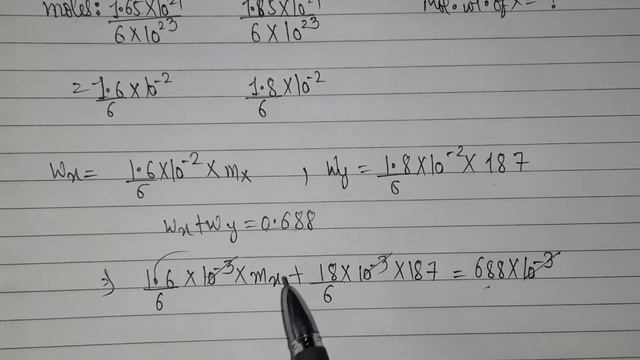 moles: 1.65×10²¹/6×10²³ 1.85×10²¹/6×10²³ Mol. wt. of x = ?
= 1.6×10⁻²/6 1.8×10⁻²/6
Wx = 1.6×10⁻²/6 × mx , Wy = 1.8×10⁻²/6 × 187
Wx + Wy = 0.688
⇒ 1.6/6 × 10⁻³ × mx + 18×10⁻³/6 × 187 = 688×10⁻³